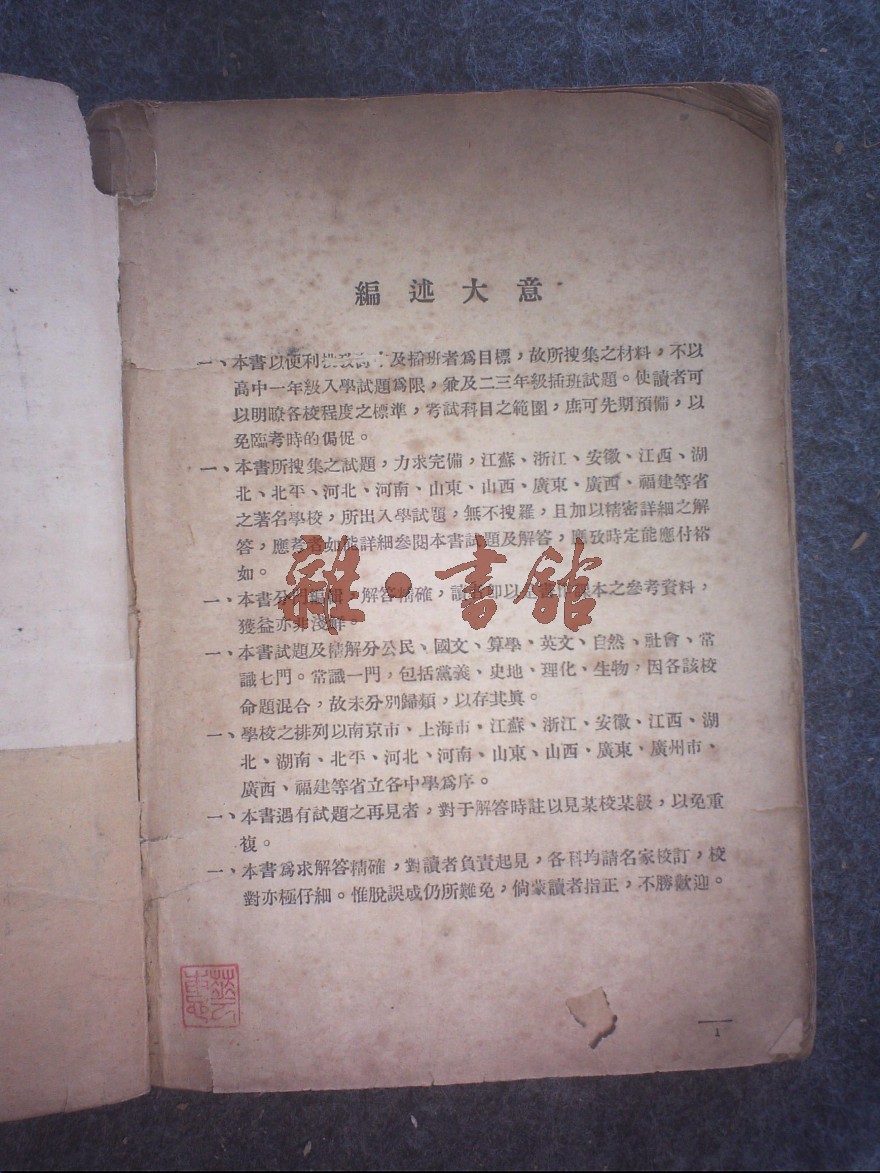 編述大意
一、本書以便利投考高中及插班者爲目標，故所搜集之材料，不以
高中一年級入學試題爲限，兼及二三年級插班試題。使讀者可
以明瞭各校程度之標準，考試科目之範圍，庶可先期預備，以
免臨考時的侷促。
一、本書所搜集之試題，力求完備，江蘇、浙江、安徽、江西、湖
北、北平、河北、河南、山東、山西、廣東、廣西、福建等省
之著名學校，所出入學試題，無不搜羅，且加以精密詳細之解
答，應考者如能詳細參閱本書試題及解答，應攷時定能應付裕
如。
一、本書分門編輯，解答精確，讀者即以 本之參考資料，
獲益亦非淺鮮。
一、本書試題及精解分公民、國文、算學、英文、自然、社會、常
識七門。常識一門，包括黨義、史地、理化、生物，因各該校
命題混合，故未分別歸類，以存其眞。
一、學校之排列以南京市、上海市、江蘇、浙江、安徽、江西、湖
北、湖南、北平、河北、河南、山東、山西、廣東、廣州市、
廣西、福建等省立各中學爲序。
一、本書遇有試題之再見者，對于解答時註以見某校某級，以免重
複。
一、本書爲求解答精確，對讀者負責起見，各科均請名家校訂，校
對亦極仔細。惟脫誤或仍所難免，倘蒙讀者指正，不勝歡迎。
1
雜·書館